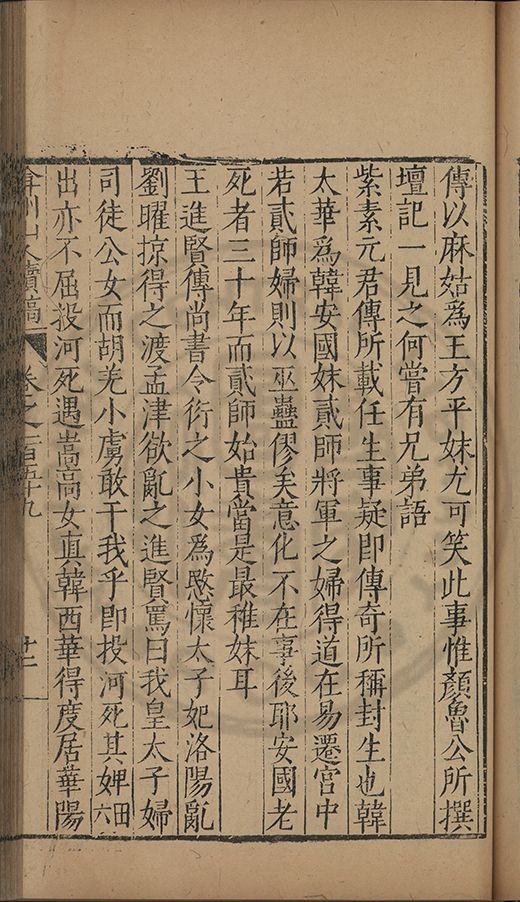 傳以麻姑爲王方平妹尤可笑此事惟顏魯公所撰
壇記一見之何嘗有兄弟語
紫素元君傳所載任生事疑即傳奇所稱封生也韓
太華爲韓安國妹貳師將軍之婦得道在易遷宮中
若貳師婦則以巫蠱僇矣意化不在事後耶安國老
死者三十年而貳師始貴當是最稚妹耳
王進賢傳尚書令衍之小女爲愍懷太子妃洛陽亂
劉曜掠得之渡孟津欲亂之進賢罵曰我皇太子婦
司徒公女而胡羌小虜敢干我乎即投河死其婢六田
出亦不屈投河死遇嵩高女真韓西華得度居華陽
弇州山人續稿 卷之一百五十九 廿二